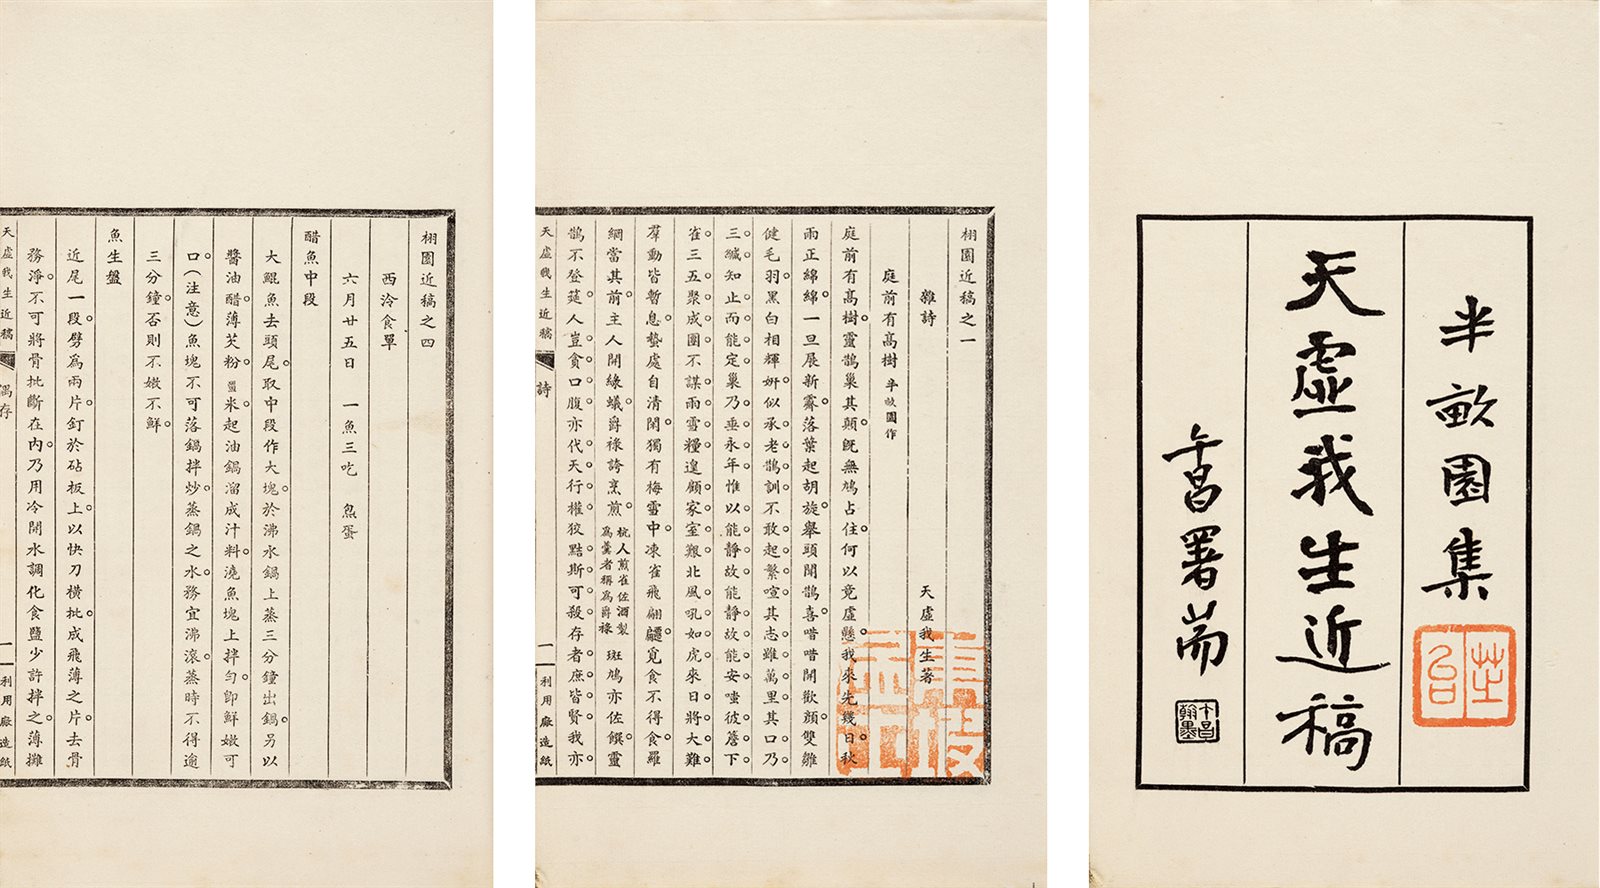 半畝園集
天虛我生近稿
午昌署耑
栩園近稿之一
雜詩 天虛我生著
庭前有高樹 半畝園作
庭前有高樹靈鵲巢其顛既無鳩占住何以竟虛懸我來先幾日秋
雨正綿綿一旦展新霽落葉起胡旋舉頭聞鵲喜喈喈開歡顏雙雛
健毛羽黑白相輝妍似承老鵲訓不敢起繁喧其志雖萬里其口乃
三緘知止而能定巢乃垂永年惟以能靜故能靜故能安嗤彼簷下
雀三五聚成團不謀雨雪糧遑顧家室艱北風吼如虎來日將大難
羣動皆暫息蟄處自清閑獨有梅雪中凍雀飛翩翾覓食不得食羅
網當其前主人開綠蟻爵祿誇烹煎 杭人煎雀佐酒製為羹者稱為爵祿 斑鳩亦佐饌靈
鵲不登筵人豈貪口腹亦代天行權狡黠斯可殺存者庶皆賢我亦
天虛我生近稿 詩 一 利用廠造紙
栩園近稿之四
西泠食單
六月廿五日 一魚三吃 魚蛋
醋魚中段
大鯤魚去頭尾取中段作大塊於沸水鍋上蒸三分鐘出鍋另以
醬油醋薄芡粉 薑 米起油鍋溜成汁料澆魚塊上拌勻卽鮮嫩可
口(注意)魚塊不可落鍋拌炒蒸鍋之水務宜沸滾蒸時不得逾
三分鐘否則不嫩不鮮
魚生盤
近尾一段劈為兩片釘於砧板上以快刀橫批成飛薄之片去骨
務淨不可將骨批斷在內乃用冷開水調化食鹽少許拌之薄攤
天虛我生近稿 偶存 一 利用廠造紙